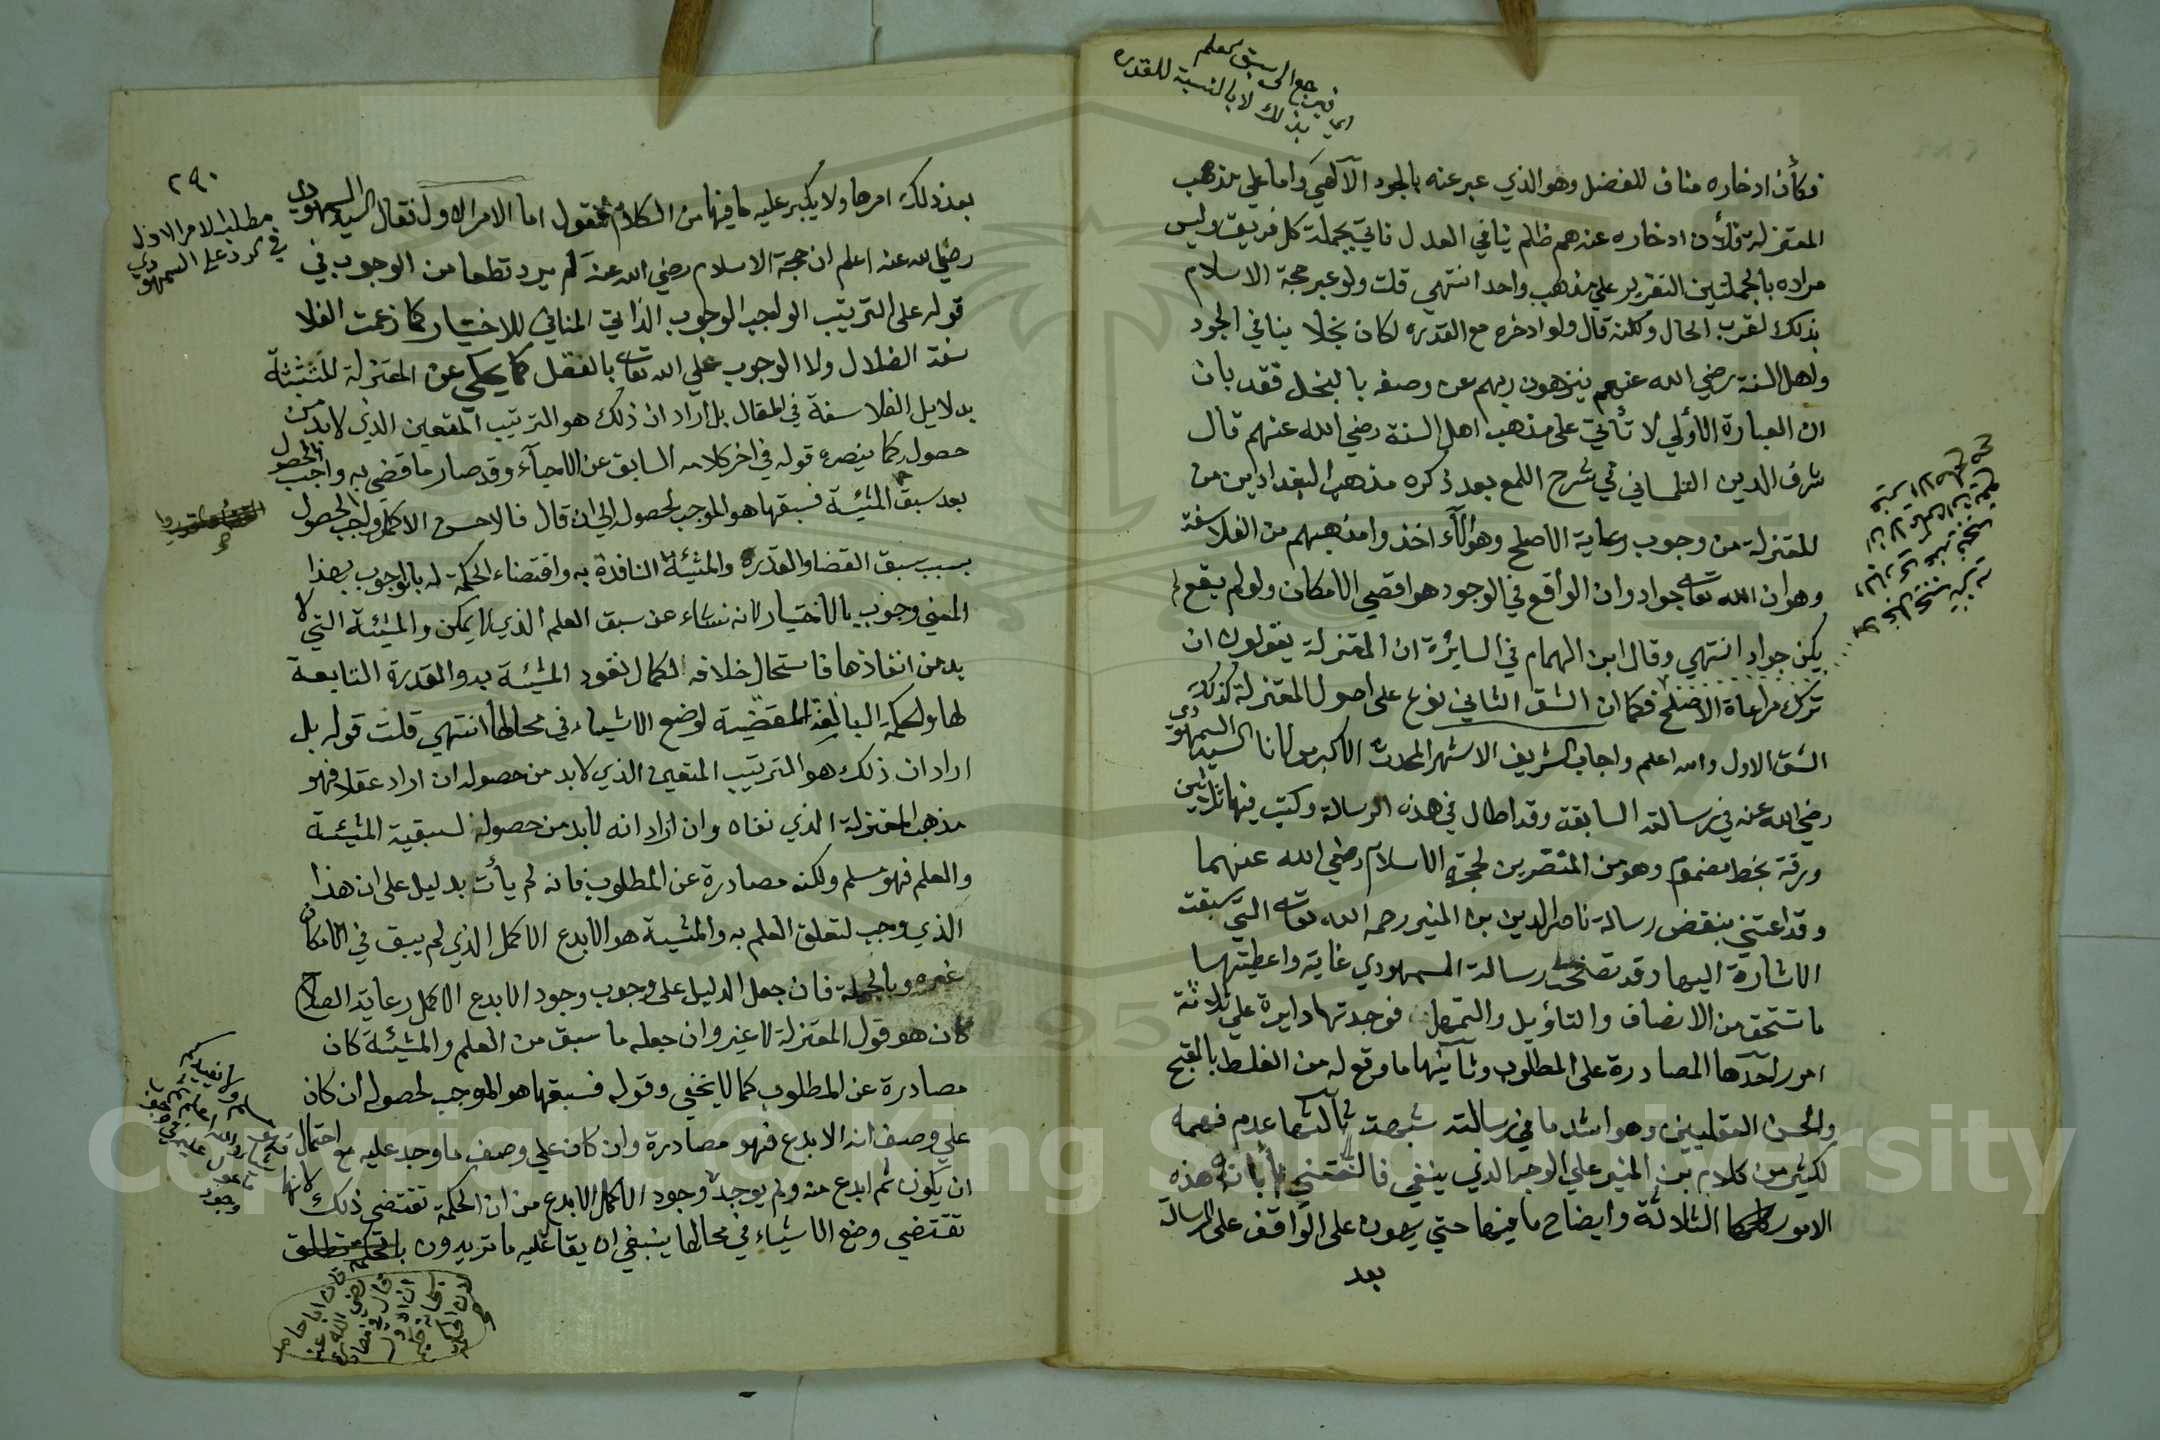 اي فيرجع الى سبق العلم
بذلك لا بالنسبة للقدرة
فكأن ادخاره مناف للفضل وهو الذي عبر عنه بالجود الآلهي واما على مذهب
المعتزلة فلأن ادخاره عندهم ظلم ينافي العدل فاتي بجملة كل فريق وليس
مراده بالجملتين التقرير على مذهب واحد انتهي قلت ولو عبر حجة الاسلام
بذلك لقرب الحال ولكنه قال ولو ادخره مع القدرة لكان بخلا ينافي الجود
واهل السنة رضي الله عنهم ينزهون ربهم عن وصفه بالبخل فقد بان
ان العبارة الأولي لا تأتي على مذهب اهل السنة رضي الله عنهم قال
شرف الدين التلمساني في شرح اللمع بعد ذكره مذهب البغداديين من
المعتزلة من وجوب رعاية الاصلح وهؤلاء اخذوا مذهبهم من الفلاسفة
وهو ان الله تعالى جواد وان الواقع في الوجود هو اقصي الامكان ولو لم يقع لم
يكن جوادا انتهي وقال ابن الهمام في المسايرة ان المعتزلة يقولون ان
ترك مراعاة الاصلح فكما ان الشق الثاني نوع على اصول المعتزلة كذلك
الشق الاول والله اعلم واجاب الشريف الاشهر المحدث الاكبر مولانا السيد السمهودي
رضي الله عنه في رسالته السابقة وقد اطال في هذه الرسالة وكتب فيها ثلاثين
ورقة بخط مضموم وهو من المنتصرين لحجة الاسلام رضي الله عنهما
وقد اعتني بنقض رسالة ناصر الدين بن المنير رحمه الله تعالى التي سبقت
الاشارة اليها وقد تصفحت رسالة السمهودي غاية واعطيتها
ما تستحق من الانصاف والتاويل والتمهل فوجدتها دايرة على ثلاثة
امور احدها المصادرة على المطلوب وثانيها ما وقع له من الغلط بالقبح
والحسن العقليين وهو اشد ما في رسالته شبهة ثالثها عدم فهمه
لكثير من كلام بن المنير على الوجه الذي ينبغي فالتعتني بأبانة هذه
الامور الثلاثة وايضاح ما فيها حتي يهون على الواقف على الرسالة
بعد
٢٩٠
مطلب الامر الاول
في الرد على السمهودي
بعد ذلك امرها ولا يكبر عليه ما فيها من الكلام فنقول اما الامر الاول فقال السيد السمهودي
رضي الله عنه اعلم ان حجة الاسلام رضي الله عنه لم يرد قطعا من الوجوب في
قوله على الترتيب الواجب الوجوب الذاتي المنافي للاختيار كما زعمت الفلا
سفة الضلال ولا الوجوب على الله تعالى بالعقل كما يحكي عن المعتزلة المتشبثة
بدلايل الفلاسفة في المقال بل اراد ان ذلك هو الترتيب المتعين الذي لابد من
حصوله كما ينصره قوله في اخر كلامه السابق عن الاحياء وقد صار ما قضي به واجب الحصول
بعد سبق المشيئة فسبقها هو الموجب لحصوله الي ان قال فالاحسن الاكمل واجب الحصول
بسبب سبق القضا والقدرة والمشيئة النافذة به واقتضاء الحكمة له بالوجوب بهذا
المعني وجوب بالاختيار لانه نشاء عن سبق العلم الذي لا يمكن والمشيئة التي لا
بد من انفاذها فاستحال خلافه لكمال نفود المشيئة به والقدرة التابعة
لها والحكمة البالغة المقتضية لوضع الاشياء في محالها انتهي قلت قوله بل
اراد ان ذلك هو الترتيب المتعين الذي لابد من حصوله ان اراد عقلا فهو
مذهب المعتزلة الذي نفاه وان اراد انه لابد من حصوله لسبقية المشيئة
والعلم فهو مسلم ولكنه مصادرة عن المطلوب فانه لم يأت بدليل على ان هذا
الذي وجب لتعلق العلم به والمشيئة هو الابدع الاكمل الذي لم يبق في الامكان
غيره وبالجملة فان جعل الدليل على وجوب وجود الابدع الاكمل رعاية الصلاح
كان هو قول المعتزلة لا غير وان جعله ما سبق من العلم والمشيئة كان
مصادرة عن المطلوب كما لا يخفي وقوله فسبقها هو الموجب لحصوله ان كان
على وصف انه الابدع فهو مصادرة وان كان على وصف ما وجد عليه مع احتمال
ان يكون ثم ابدع منه ولم يوجد وجود الاكمل الابدع من ان الحكمة تقتضي ذلك لانها
تقتضي وضع الاشياء في محالها ينبغي ان يقال عليه ما تريدون